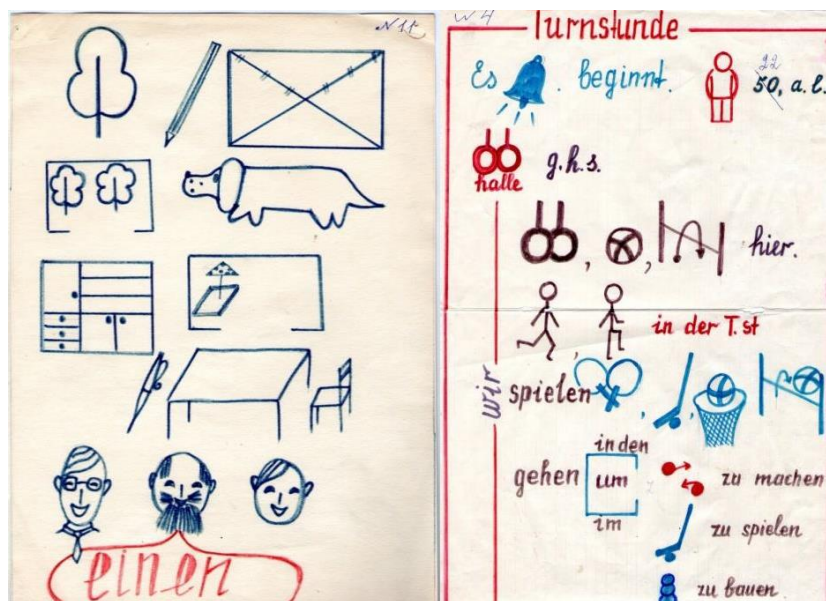 N 15
einen
N 4
Turnstunde
Es beginnt.
22
50, a. l.
halle
g. h. s.
hier.
in der T. st
wir
spielen
in den
gehen um zu machen
im
zu spielen
zu bauen